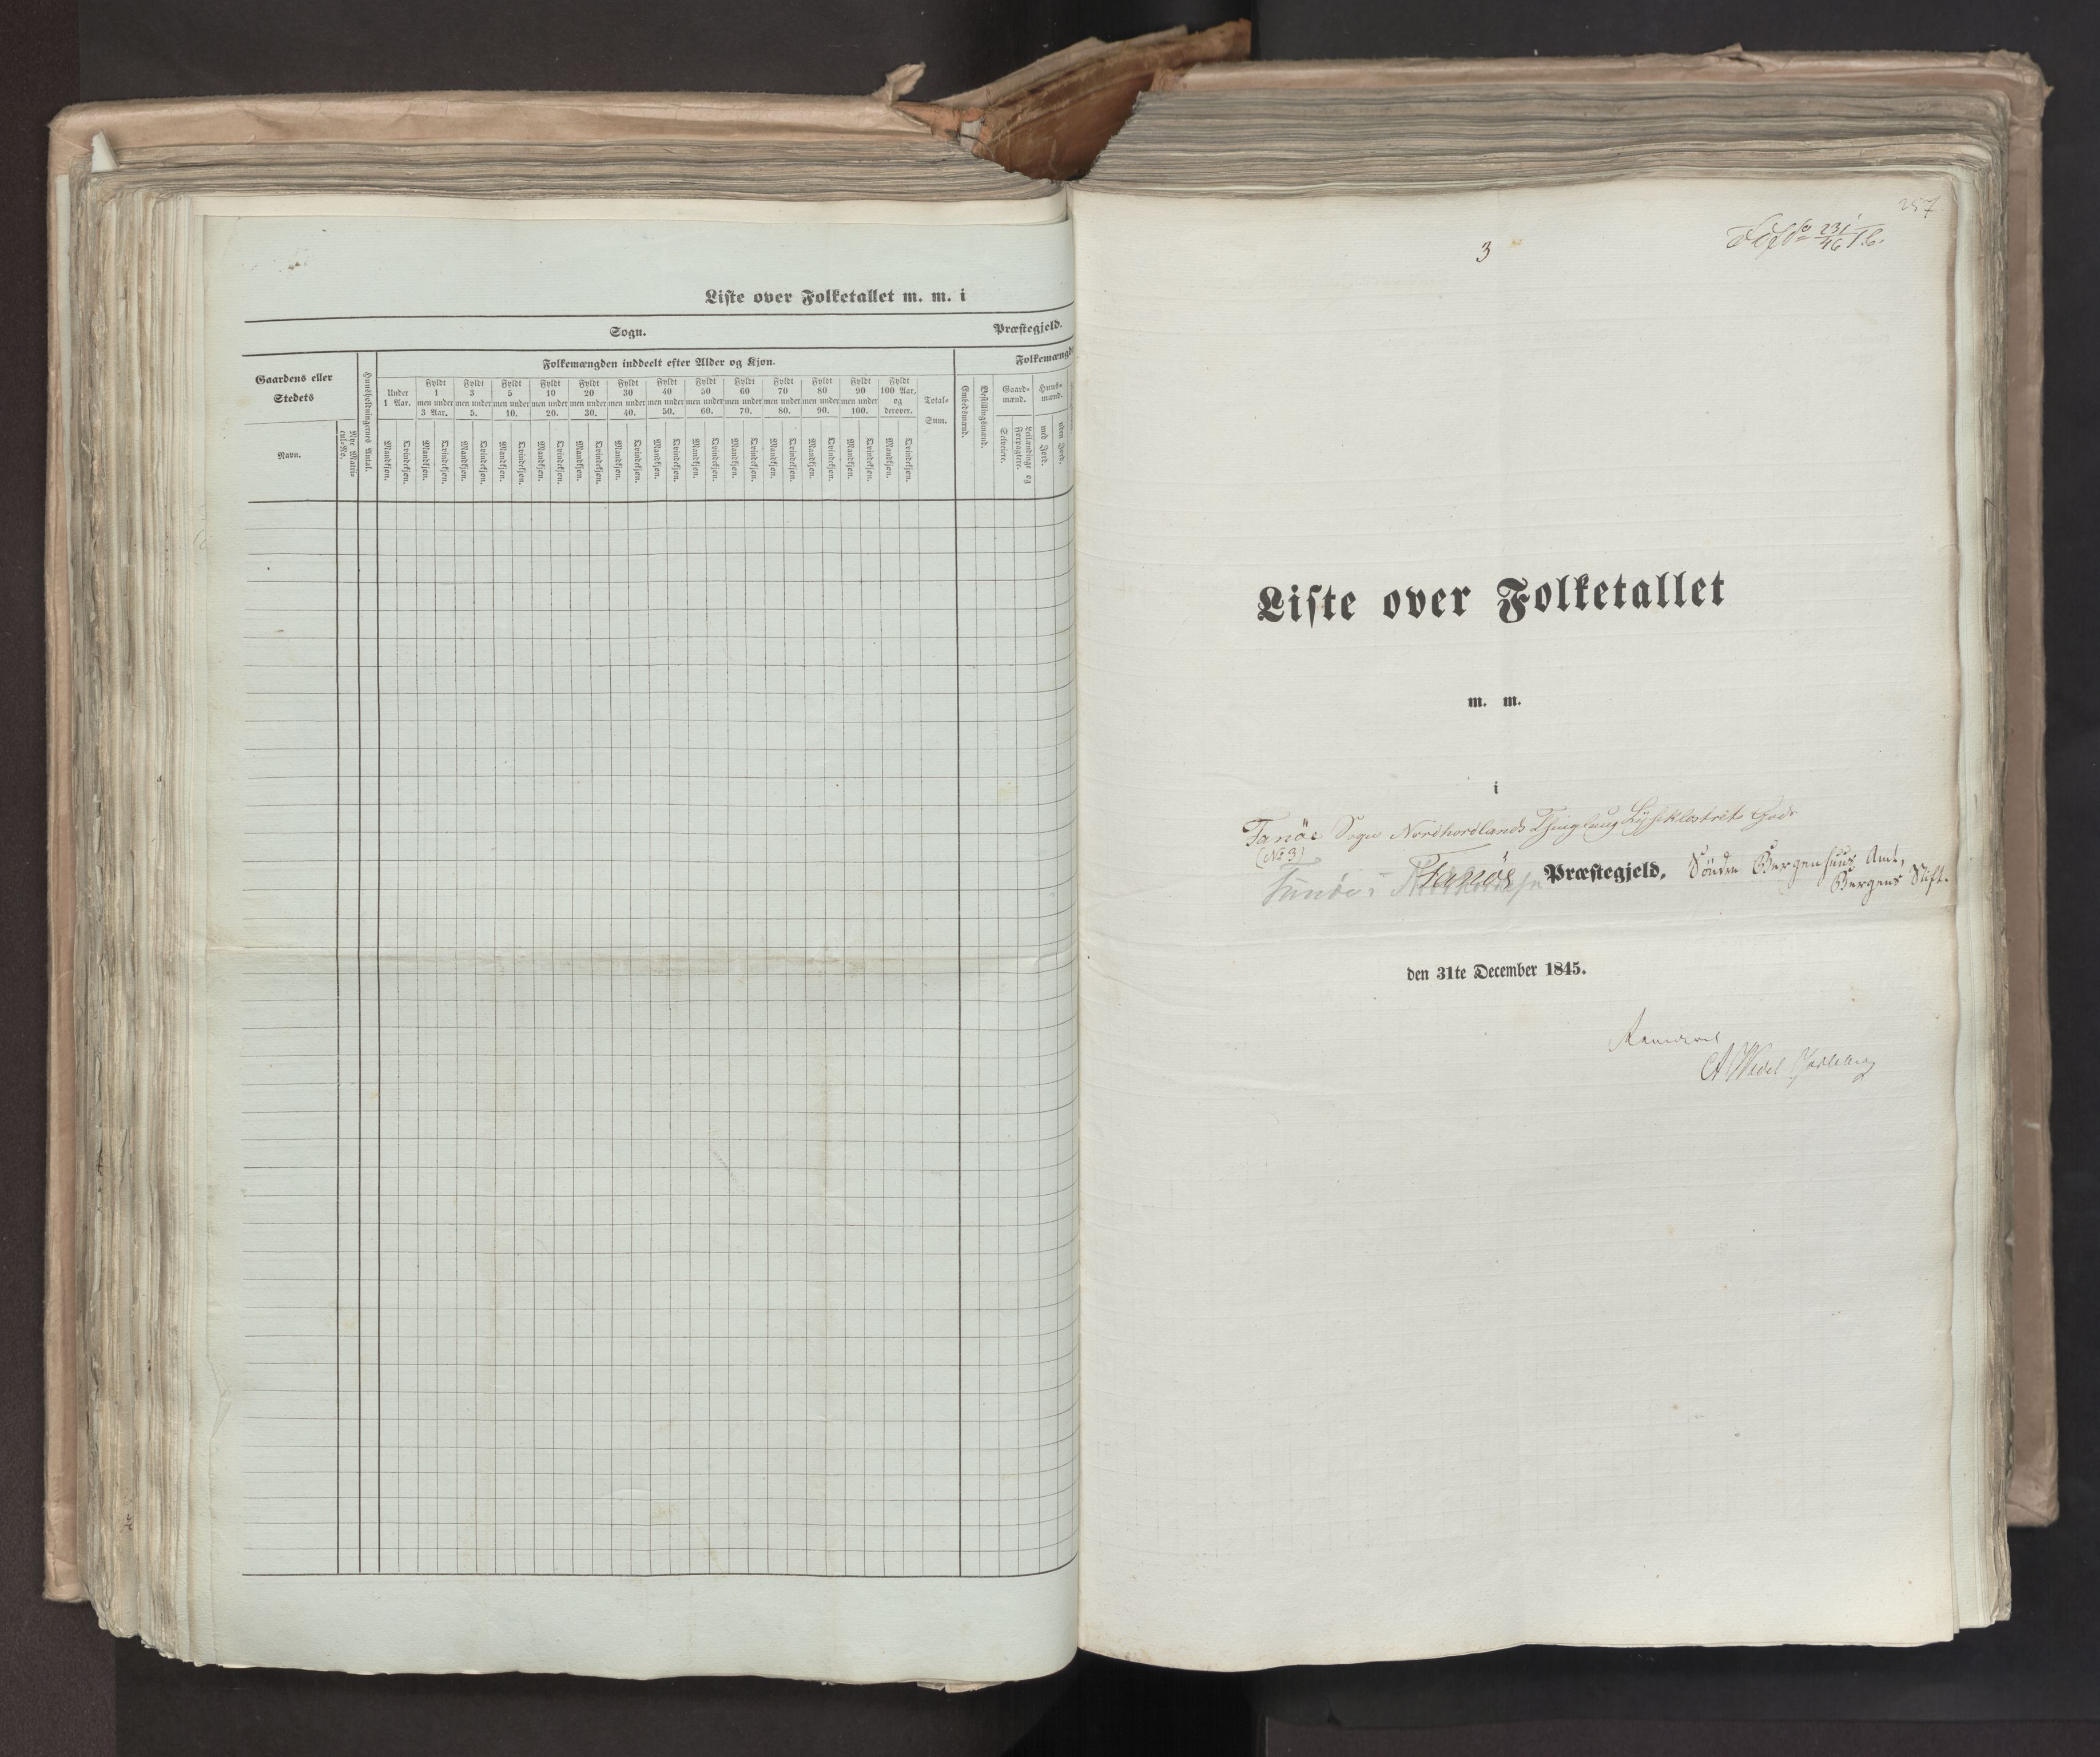 Liste over Folketallet m. m. i
Sogn. Præstegjeld.
Gaardens eller
Stedets
Navn.
Nye Matri-
cul-No.
Huusholdningernes Antal.
Folkemængden inddeelt efter Alder og Kjøn.
Under
1 Aar.
Fyldt
1
men under
3 Aar.
Fyldt
3
men under
5.
Fyldt
5
men under
10.
Fyldt
10
men under
20.
Fyldt
20
men under
30.
Fyldt
30
men under
40.
Fyldt
40
men under
50.
Fyldt
50
men under
60.
Fyldt
60
men under
70.
Fyldt
70
men under
80.
Fyldt
80
men under
90.
Fyldt
90
men under
100.
Fyldt
100 Aar,
og
derover.
Total-
Sum.
Mandkjøn. Qvindekjøn. Mandkjøn. Qvindekjøn. Mandkjøn. Qvindekjøn. Mandkjøn. Qvindekjøn. Mandkjøn. Qvindekjøn. Mandkjøn. Qvindekjøn. Mandkjøn. Qvindekjøn. Mandkjøn. Qvindekjøn. Mandkjøn. Qvindekjøn. Mandkjøn. Qvindekjøn. Mandkjøn. Qvindekjøn. Mandkjøn. Qvindekjøn. Mandkjøn. Qvindekjøn. Mandkjøn. Qvindekjøn.
Folkemængd
Embedsmænd.
Bestillingsmænd.
Gaard-
mænd.
Selveiere.
Leilændinge og
Forpagtere.
Huus-
mænd.
med Jord.
uden Jord.
257
3
Liste over Folketallet
m. m.
i
Fanöe Sogn Nordhordlands Thinglaug Lyseklostrets Gods
(No 3)
Fanöe Præstegjeld, Söndre Bergenhuus Amt,
Bergens Stift.
den 31te December 1845.
A Wedel Jarlsberg